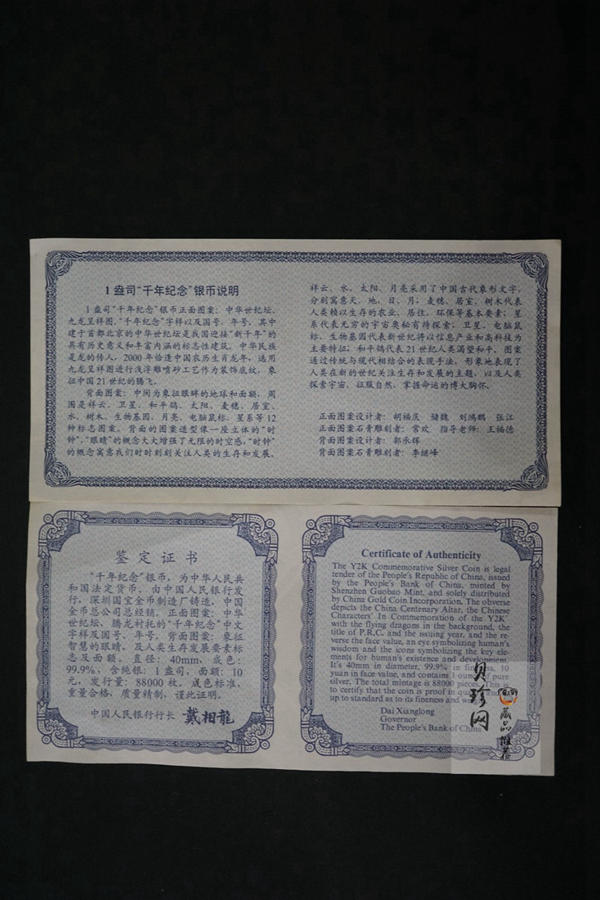 1盎司“千年纪念”银币说明
1盎司“千年纪念”银币正面图案：中华世纪坛、
九龙呈祥图、“千年纪念”字样以及国号、年号，其中
建于首都北京的中华世纪坛是我国迎接“新千年”的
具有历史意义和丰富内涵的标志性建筑。中华民族
是龙的传人，2000年恰逢中国农历生肖龙年，选用
九龙呈祥图进行浅浮雕喷砂工艺作为装饰底纹，象
征中国21世纪的腾飞。
背面图案：中间为象征眼眸的地球和面额，周
围是祥云、卫星、和平鸽、太阳、麦穗、居室、
水、树木、生物基因、月亮、电脑鼠标、星系等12
种标志图案。背面的图案造型像一座立体的“时
钟”，“眼睛”的概念大大增强了无限的时空感，“时钟”
的概念寓意我们时时刻刻关注人类的生存和发展。
祥云、水、太阳、月亮采用了中国古代象形文字，
分别寓意天、地、日、月；麦穗、居室、树木代表
人类赖以生存的农业、居住、环保等基本要素；星
系代表无穷的宇宙奥秘有待探索；卫星、电脑鼠
标、生物基因代表新世纪将以信息产业和高科技为
主要特征；和平鸽代表21世纪人类渴望和平。图案
通过传统与现代相结合的表现手法，形象地表现了
人类在新的世纪关注生存和发展的主题，以及人类
探索宇宙、征服自然、掌握命运的博大胸怀。
正面图案设计者：胡福庆 储魏 刘鸿鹏 张江
正面图案石膏雕刻者：常欢 指导老师：王福德
背面图案设计者：郭承辉
背面图案石膏雕刻者：李继峰
鉴定证书
“千年纪念”银币，为中华人民共
和国法定货币，由中国人民银行发
行，深圳国宝金币制造厂铸造，中国
金币总公司总经销。正面图案：中华
世纪坛、腾龙衬托的“千年纪念”中文
字样及国号、年号。背面图案：象征
智慧的眼睛，及人类生存发展要素标
志及面额。直径：40mm，成色：
99.9%，含纯银：1盎司，面额：10
元，发行量：88000枚，成色标准，
重量合格，质量精制，谨此证明。
中国人民银行行长 戴相龍
Certificate of Authenticity
The Y2K Commemorative Silver Coin is legal
tender of the People's Republic of China, issued
by the People's Bank of China, minted by
Shenzhen Guobao Mint, and solely distributed
by China Gold Coin Incorporation. The obverse
depicts the China Centenary Altar, the Chinese
Characters' In Commemoration of the Y2K'
with the flying dragons in the background, the
title of P.R.C. and the issuing year, and the re-
verse the face value, an eye symbolizing human's
wisdom and the icons symbolizing the key ele-
ments for human's existence and development.
It's 40mm in diameter, 99.9% in fineness, 10
yuan in face value, and contains 1 ounce of pure
silver. The total mintage is 88000 pieces. This is
to certify that the coin is proof in quality and
up to standard as to its fineness and weight.
Dai Xianglong
Governor
The People's Bank of China
贝珍网
藏品